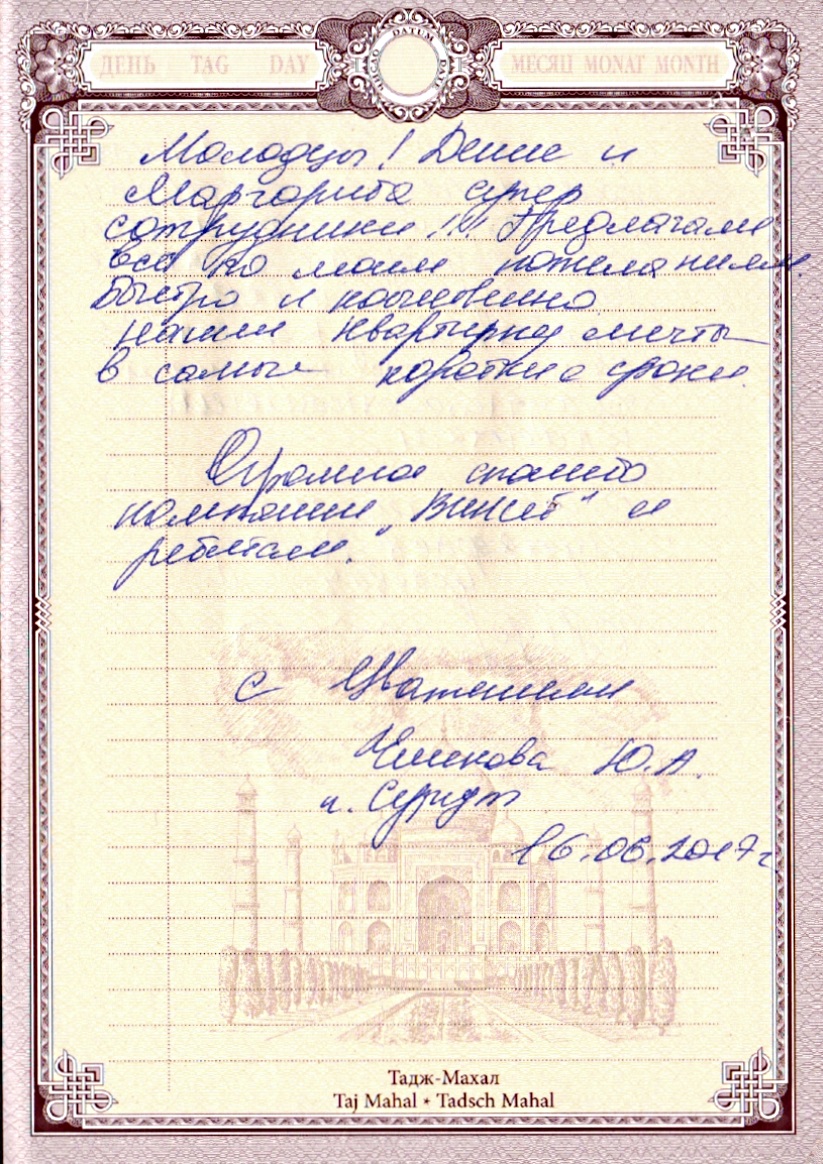 ДЕНЬ TAG DAY
DATUM
МЕСЯЦ MONAT MONTH
Молодцы! Денис и
Маргарита супер
сотрудники!!! Предлагали
всё по моим пожеланиям.
Быстро и
нашли квартирку мечты
в самые короткие сроки.
Огромное спасибо
компании „Визит" и
ребятам.
С Уважением
Ю.А.
16.06.2017г
Тадж-Махал
Taj Mahal • Tadsch Mahal